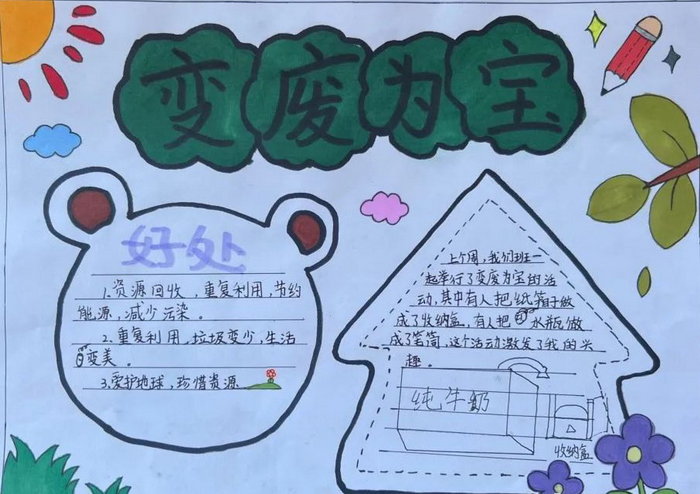 变废为宝
好处
1.资源回收，重复利用，节约
能源，减少污染。
2.重复利用，垃圾变少，生活
变美。
3.爱护地球，珍惜资源
上个周，我们班一
起举行了变废为宝的活
动，其中有人把纸箱子做
成了收纳盒，有人把水瓶做
成了笔筒，这个活动激发了我的兴
趣。
纯牛奶
收纳盒